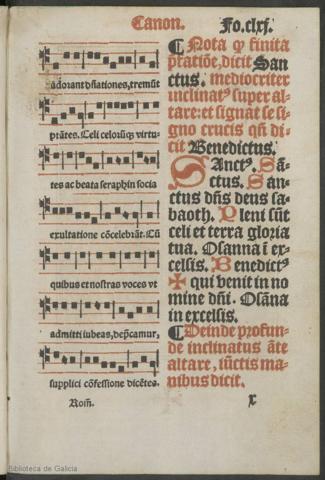 Canon. Fo.clxj.
adorant dñationes, tremũt
ptãtes. Celi celorũq̃ virtu-
tes ac beata seraphin socia
exultatione cõcelebrãt. Cũ
quibus et nostras voces vt
admitti iubeas, dep̃camur,
supplici cõfessione dicẽtes.
Rom̃.
¶ Nota q̃ finita
p̃fatiõe, dicit San
ctus. mediocriter
inclinat⁹ super al-
tare: et signat se si-
gno crucis qñ di-
cit Benedictus.
SAnct⁹. Sã-
ctus. San-
ctus dñs deus sa-
baoth. Pleni sũt
celi et terra gloria
tua. Osanna ĩ ex-
celsis. Benedict⁹
✠ qui venit in no
mine dñi. Osãna
in excelsis.
¶ Deinde profun-
de inclinatus ãte
altare, iũctis ma-
nibus dicit.
x
Biblioteca de Galicia